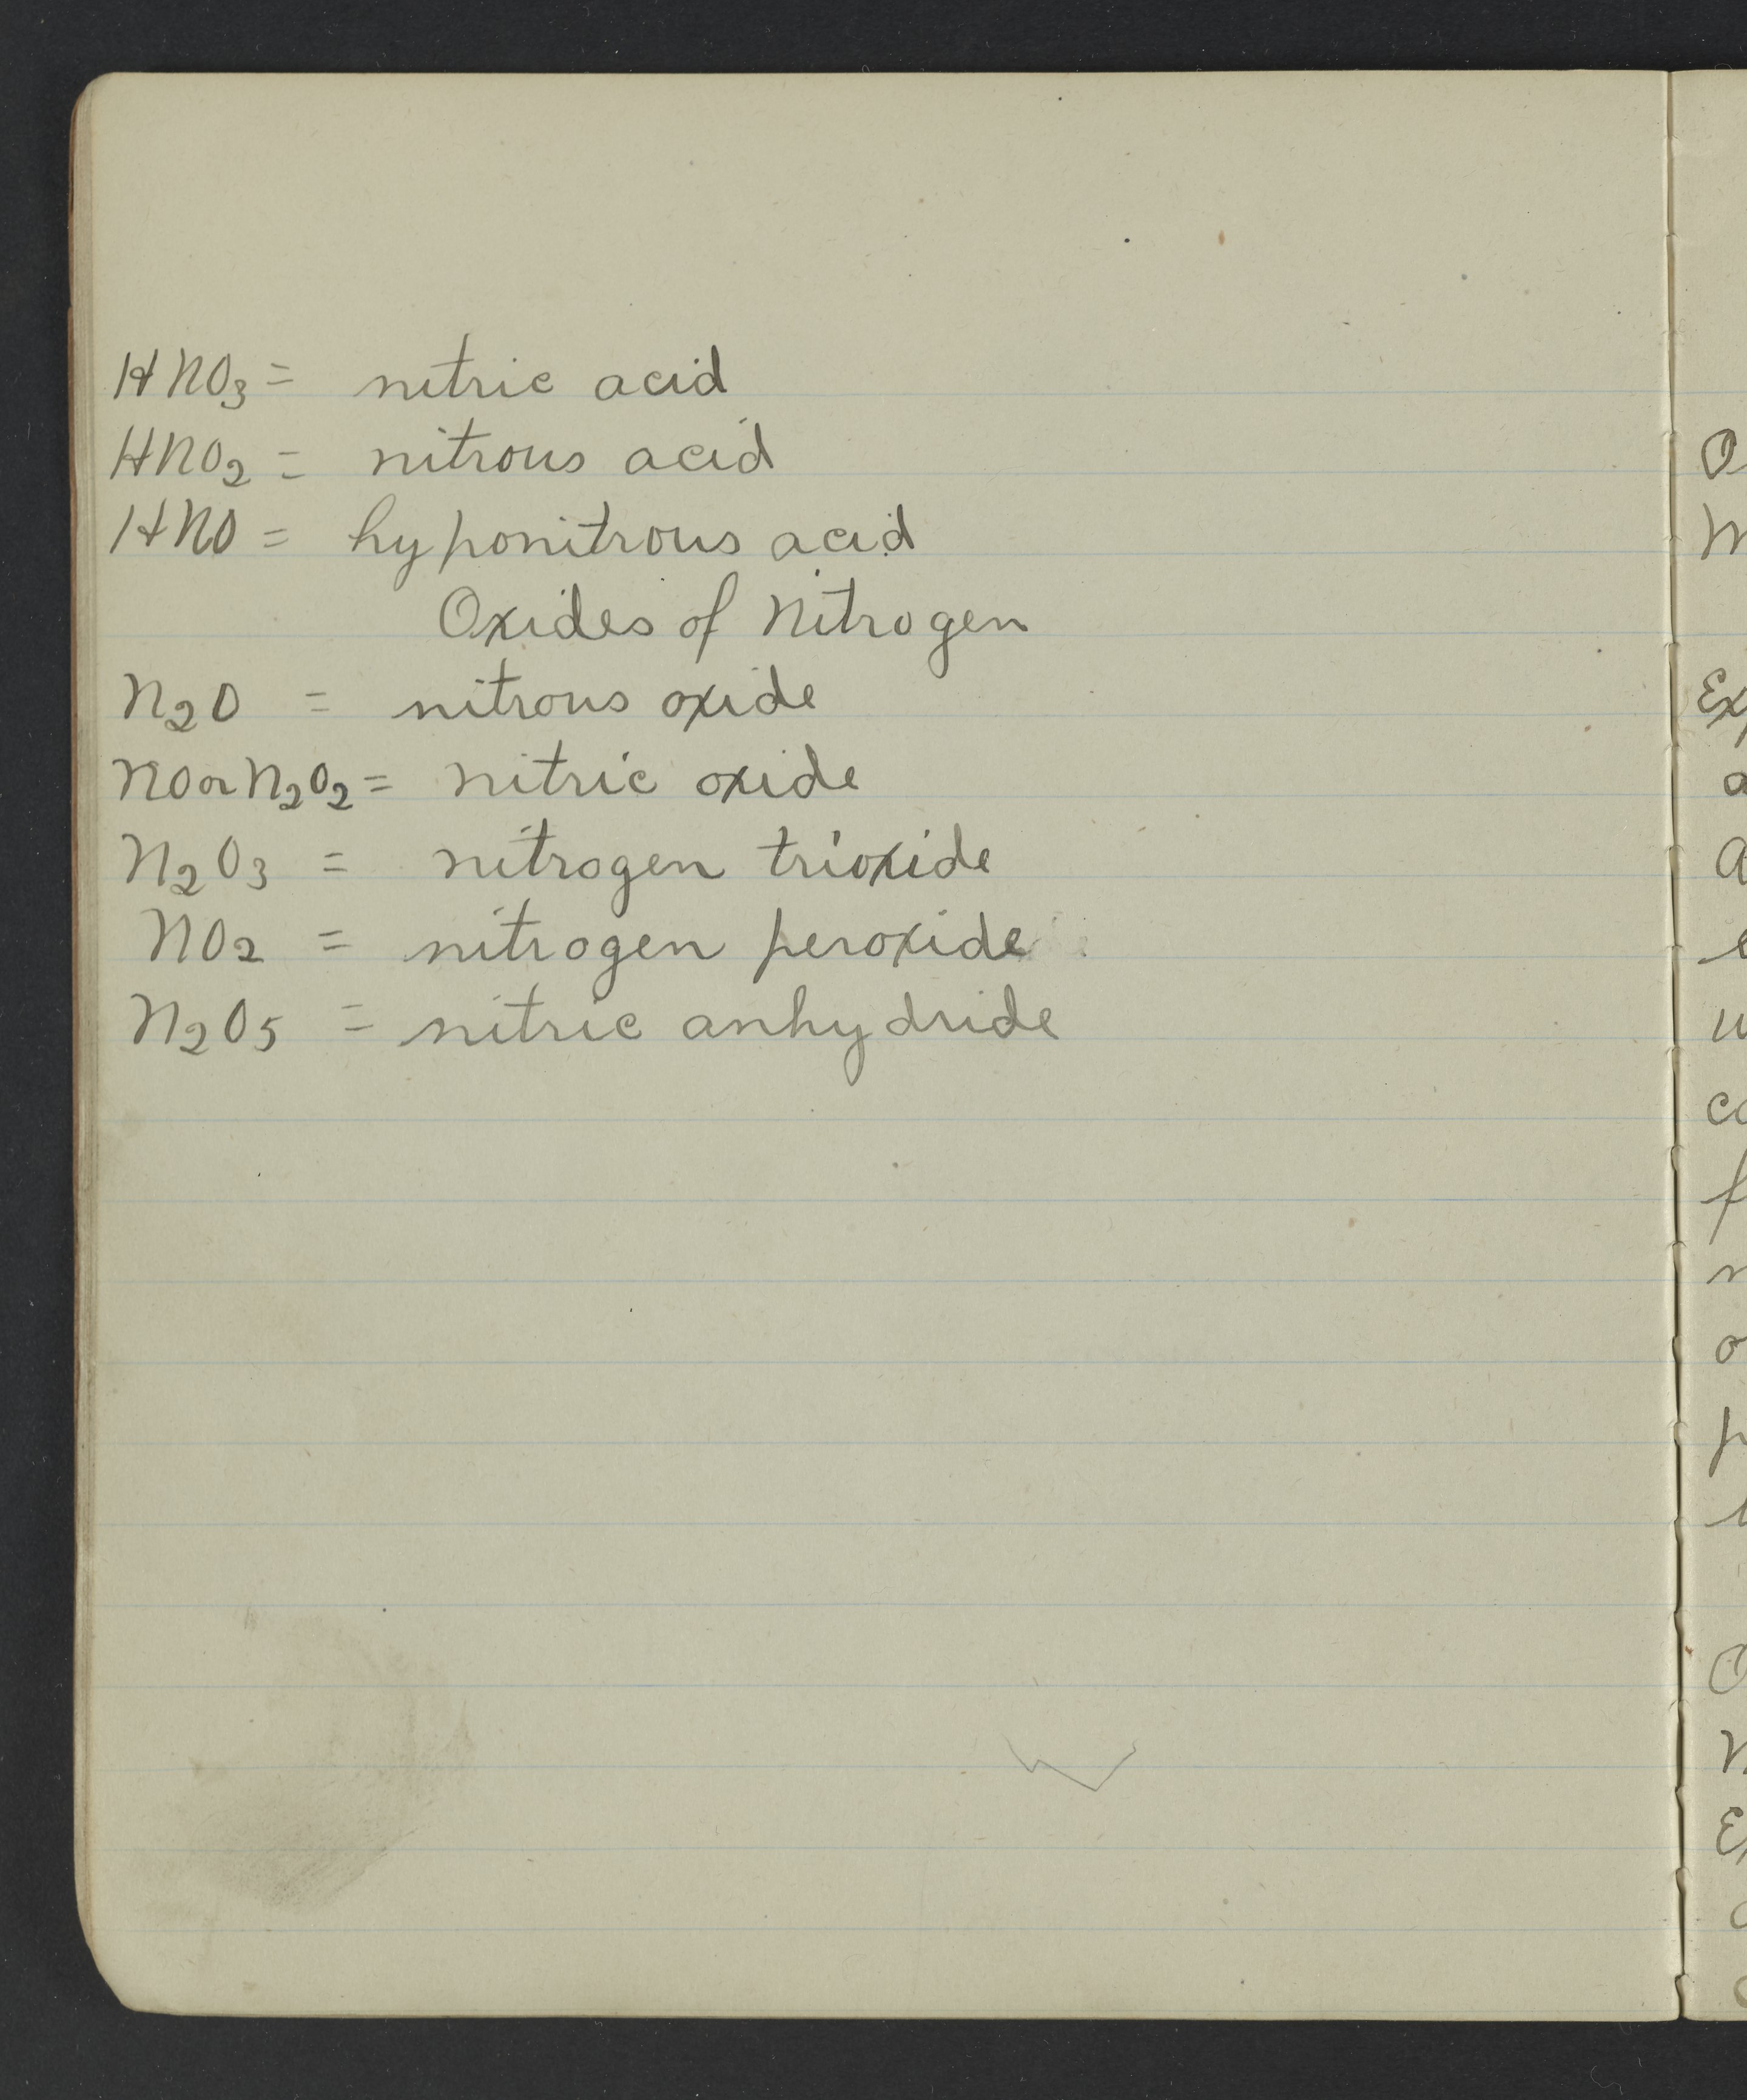 HNO₃ = nitric acid
HNO₂ = nitrous acid
HNO = hyponitrous acid
Oxides of Nitrogen
N₂O = nitrous oxide
NO or N₂O₂ = nitric oxide
N₂O₃ = nitrogen trioxide
NO₂ = nitrogen peroxide
N₂O₅ = nitric anhydride